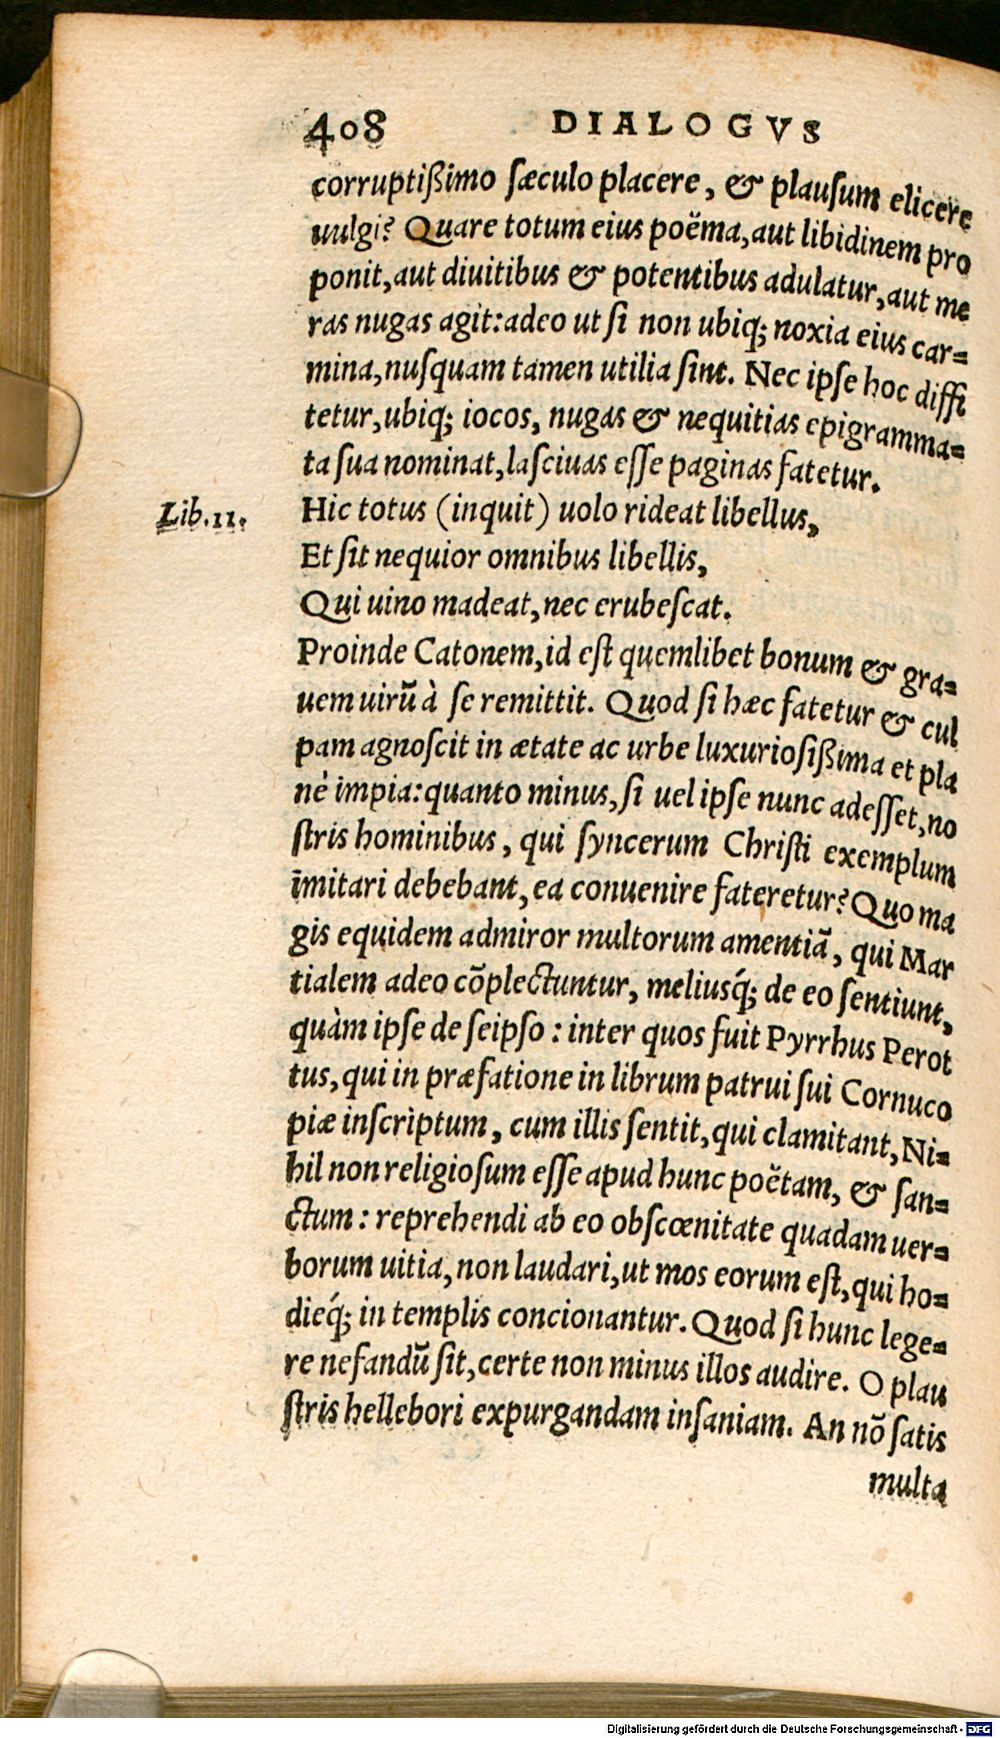 408 DIALOGVS
corruptißimo sæculo placere, & plausum elicere
uulgi? Quare totum eius poëma, aut libidinem pro
ponit, aut diuitibus & potentibus adulatur, aut me
ras nugas agit: adeo ut si non ubiq; noxia eius car=
mina, nusquam tamen utilia sint. Nec ipse hoc diffi
tetur, ubiq; iocos, nugas & nequitias epigramma=
ta sua nominat, lasciuas esse paginas fatetur.
Lib. 11. Hic totus (inquit) uolo rideat libellus,
Et sit nequior omnibus libellis,
Qui uino madeat, nec erubescat.
Proinde Catonem, id est quemlibet bonum & gra=
uem uirũ à se remittit. Quod si hæc fatetur & cul
pam agnoscit in ætate ac urbe luxuriosißima et pla
nè impia: quanto minus, si uel ipse nunc adesset, no
stris hominibus, qui syncerum Christi exemplum
imitari debebant, ea conuenire fateretur? Quo ma
gis equidem admiror multorum amentiã, qui Mar
tialem adeo cõplectuntur, meliusq́; de eo sentiunt,
quàm ipse de seipso: inter quos fuit Pyrrhus Perot
tus, qui in præfatione in librum patrui sui Cornuco
piæ inscriptum, cum illis sentit, qui clamitant, Ni=
hil non religiosum esse apud hunc poëtam, & san=
ctum: reprehendi ab eo obscœnitate quadam uer=
borum uitia, non laudari, ut mos eorum est, qui ho=
dieq́; in templis concionantur. Quod si hunc lege=
re nefandũ sit, certe non minus illos audire. O plau
stris hellebori expurgandam insaniam. An nõ satis
multa
Digitalisierung gefördert durch die Deutsche Forschungsgemeinschaft - DFG